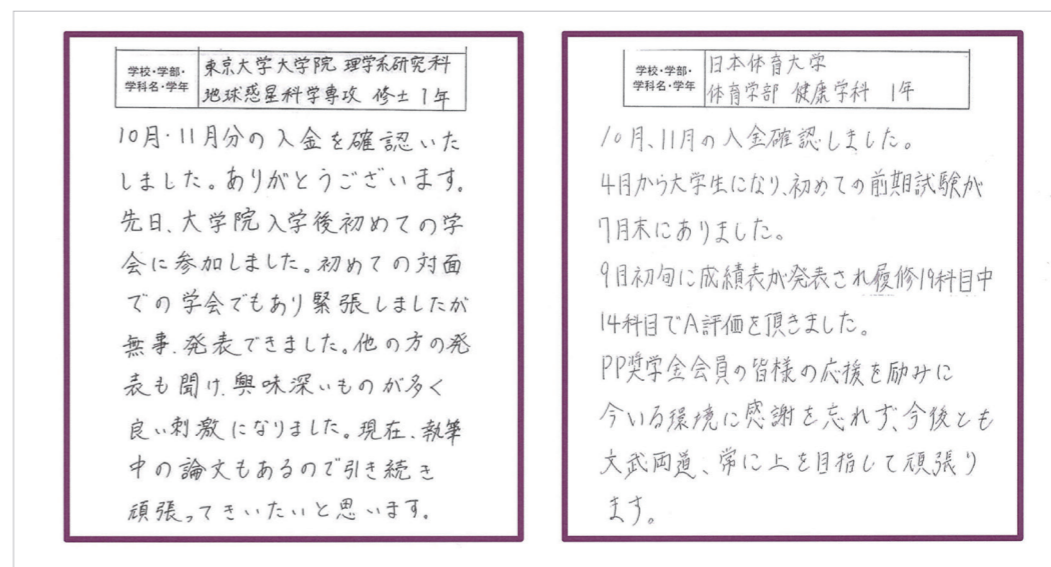 学校・学部・
学科名・学年
東京大学大学院 理学系研究科
地球惑星科学専攻 修士 1年
10月・11月分の入金を確認いた
しました。ありがとうございます。
先日、大学院入学後初めての学
会に参加しました。初めての対面
での学会でもあり緊張しましたが
無事、発表できました。他の方の発
表も聞け、興味深いものが多く
良い刺激になりました。現在、執筆
中の論文もあるので引き続き
頑張ってきいたいと思います。
学校・学部・
学科名・学年
日本体育大学
体育学部 健康学科 1年
10月、11月の入金確認しました。
4月から大学生になり、初めての前期試験が
7月末にありました。
9月初旬に成績表が発表され履修19科目中
14科目でA評価を頂きました。
PP奨学金会員の皆様の応援を励みに
今いる環境に感謝を忘れず、今後とも
文武両道、常に上を目指して頑張り
ます。